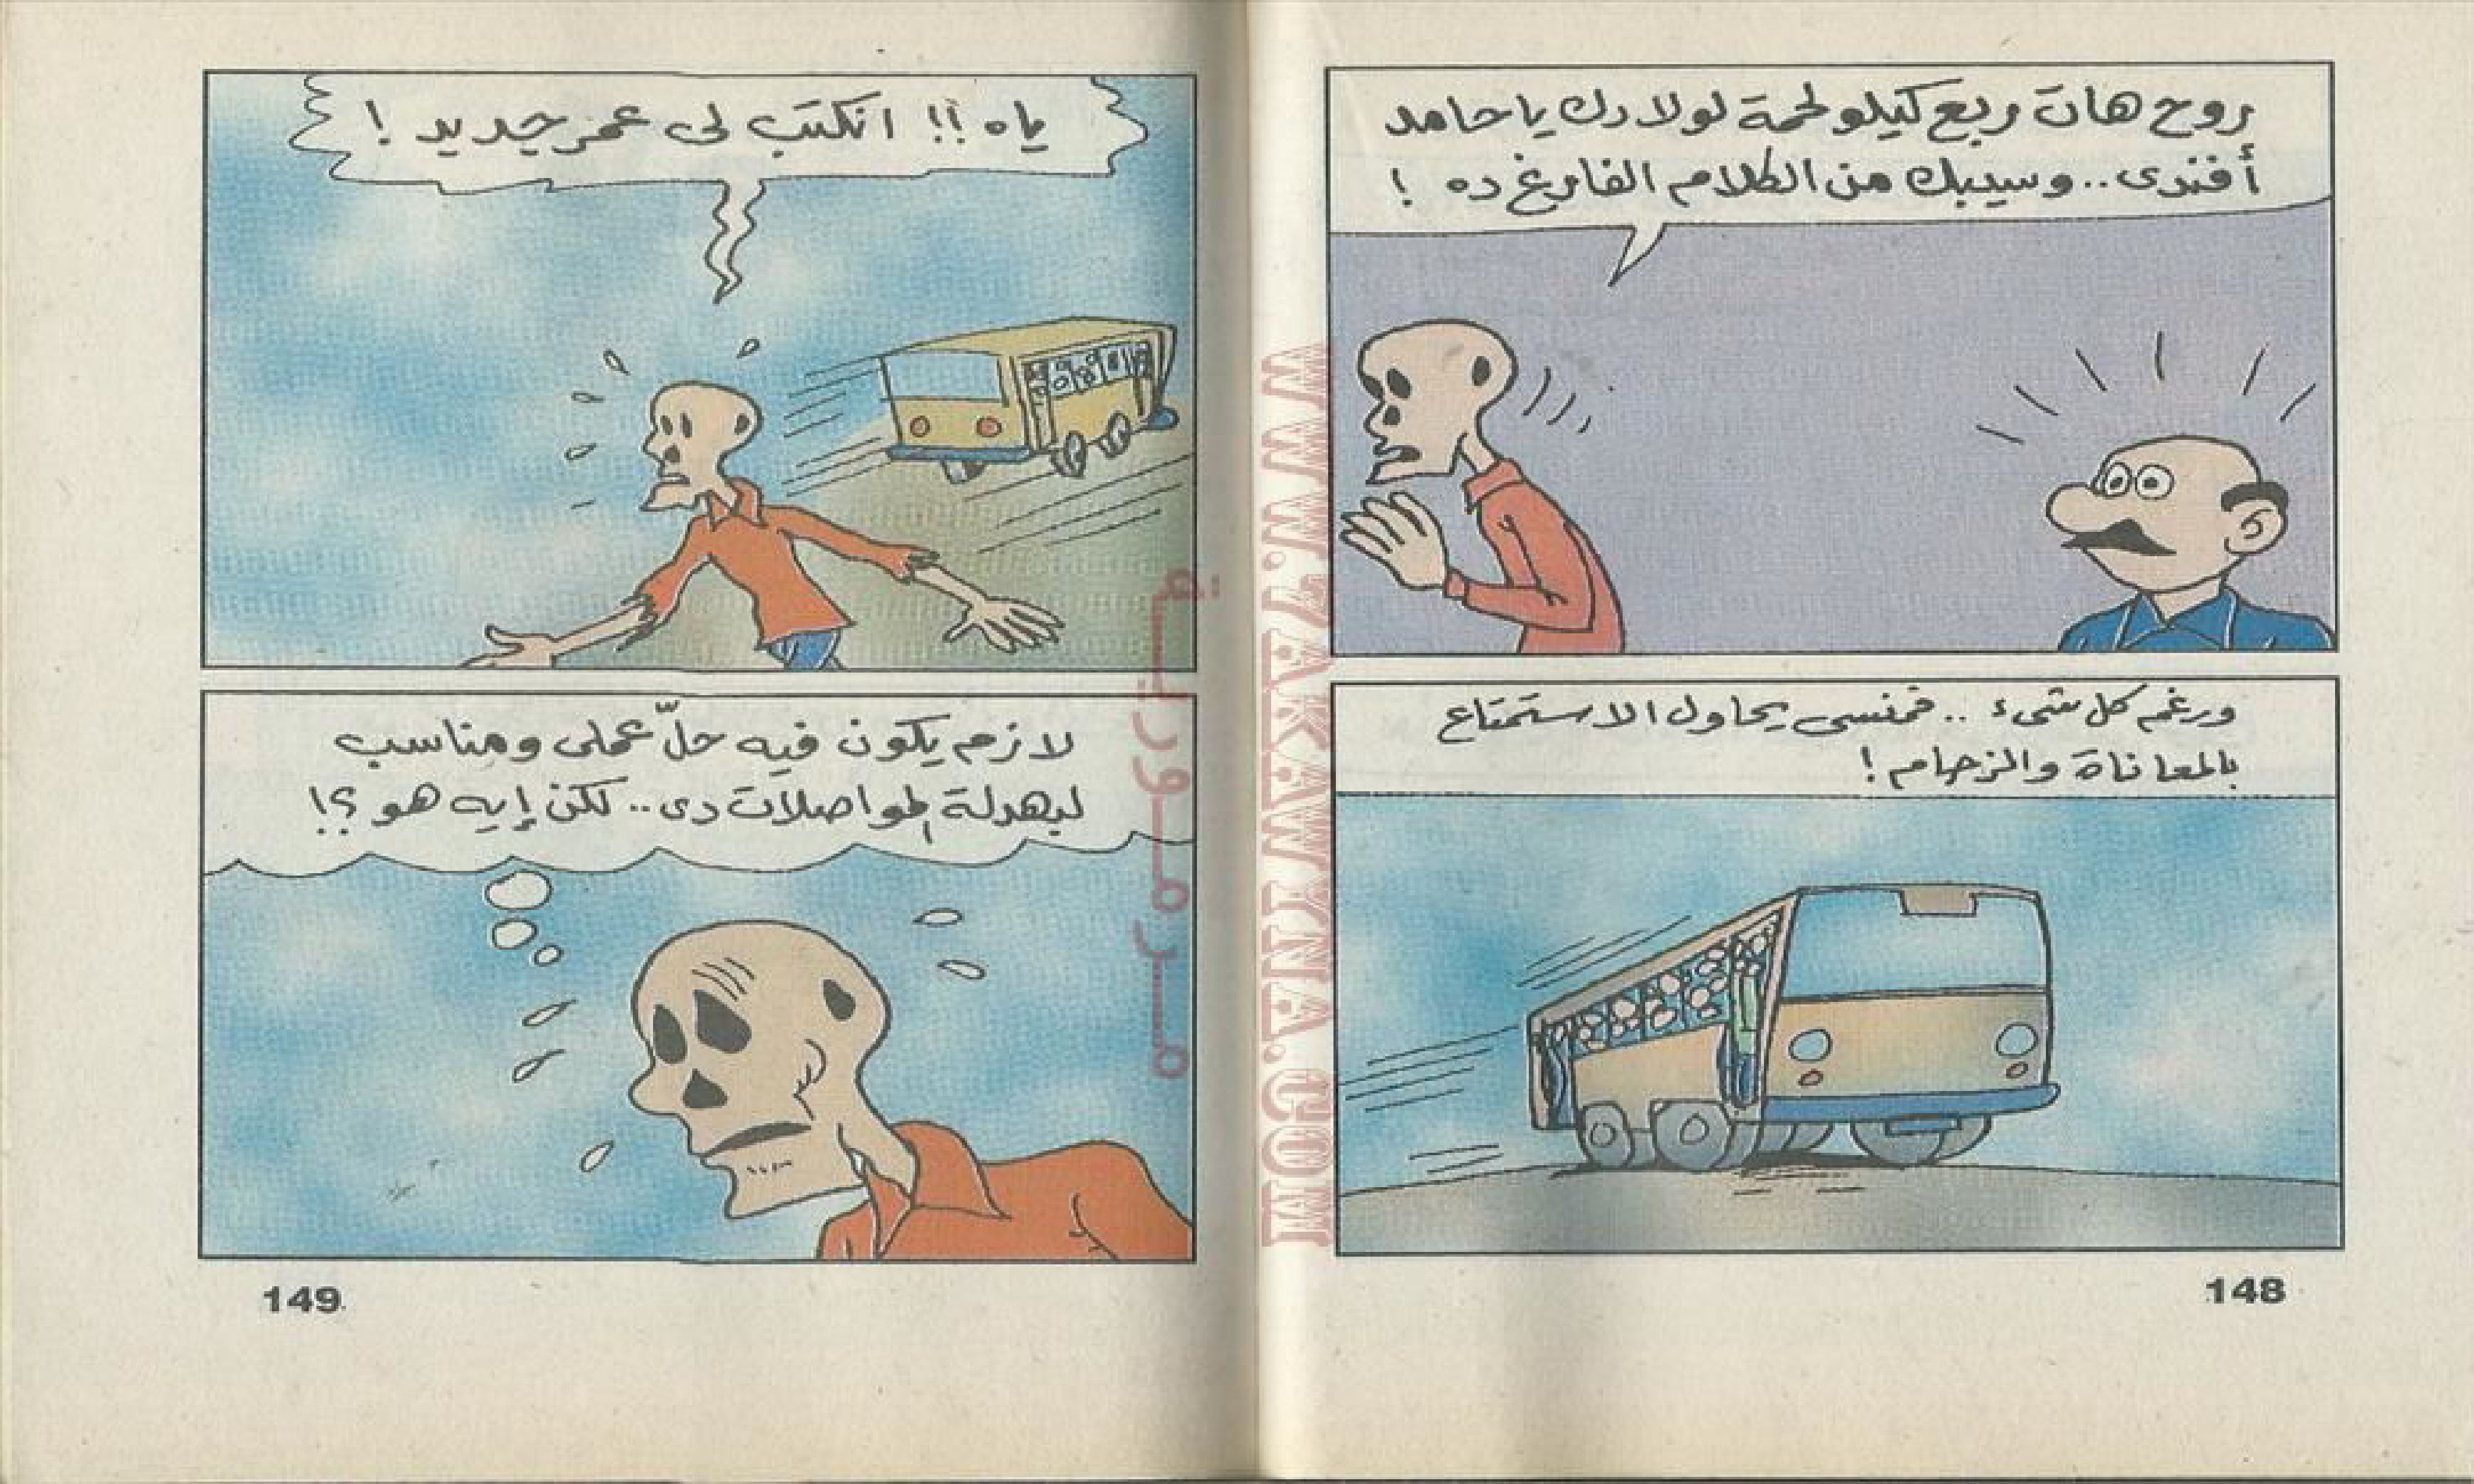 روح هات ربع كيلو لحمة لولادك يا حامد
أفندى.. وسيبك من الكلام الفارغ ده !
ورغم كل شىء .. فمنسى يحاول الاستمتاع
بالمعاناة والزحام !
148
ياه !! انكتب لى عمر جديد !
لازم يكون فيه حلّ عملى ومناسب
لبهدلة المواصلات دى.. لكن إيه هو ؟!
149
WWW.7AKAWYNA.COM